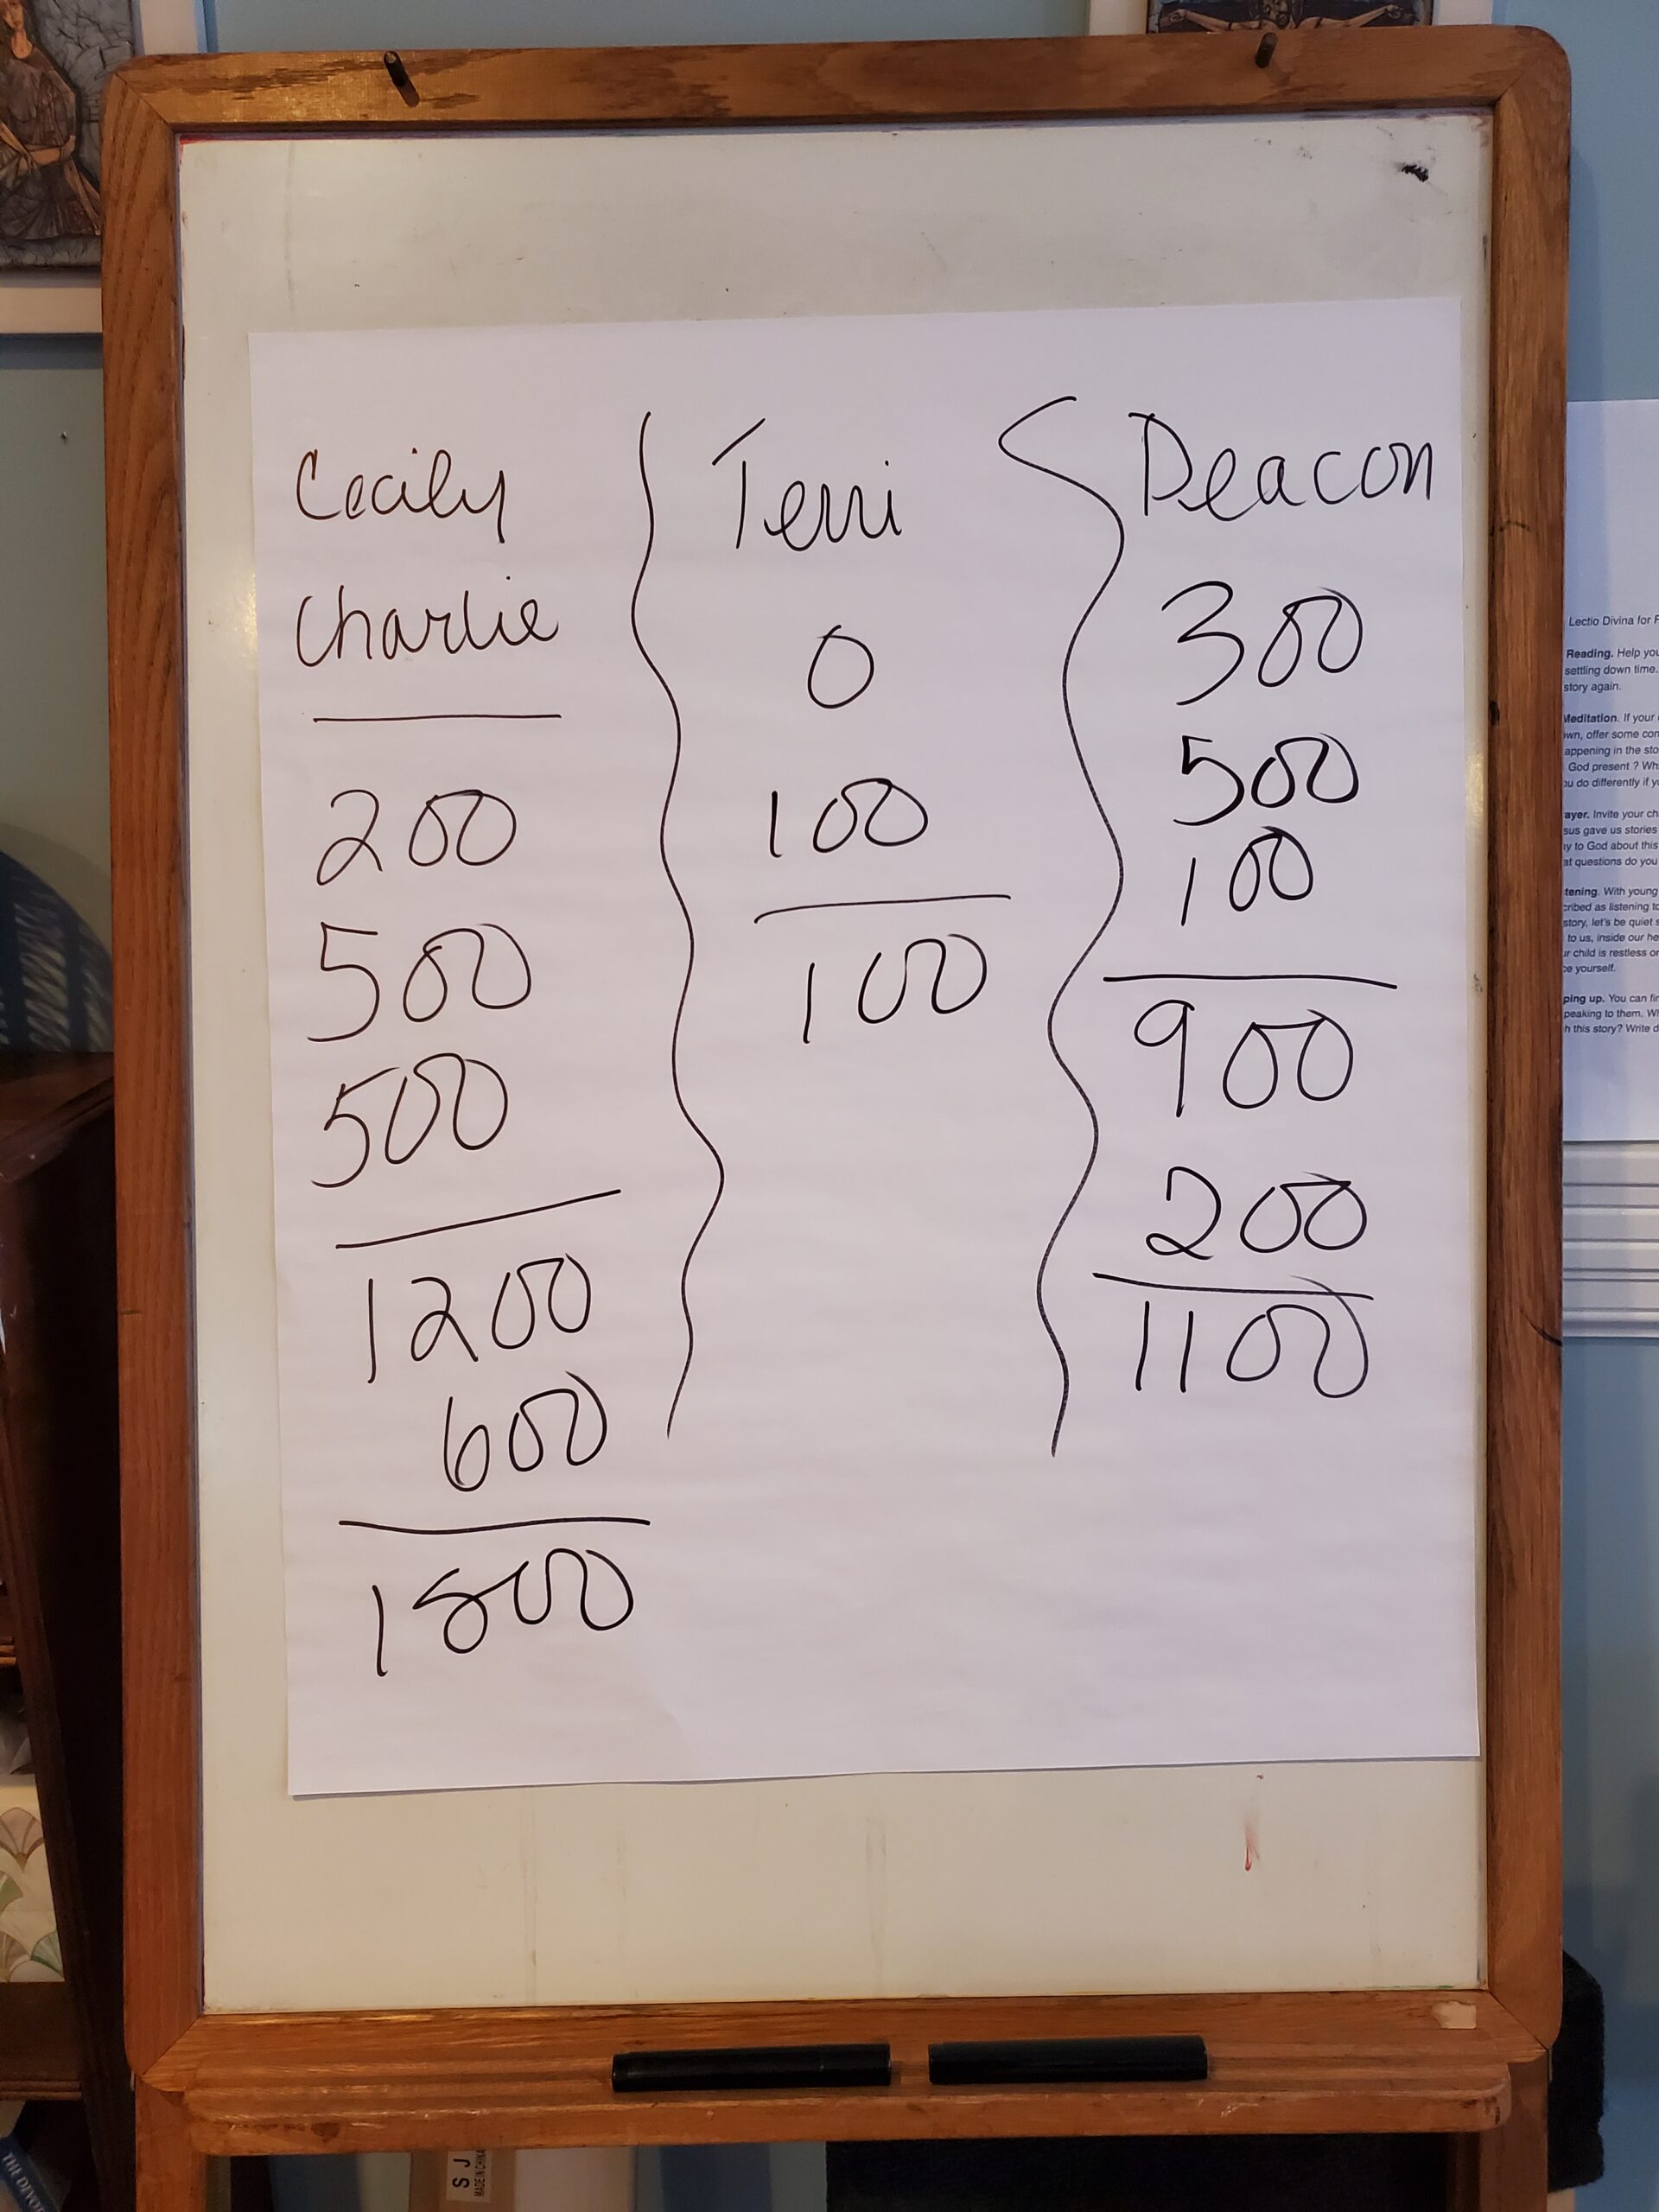 Cecily
Charlie
200
500
500
1200
600
1800
Terri
0
100
100
Deacon
300
500
100
900
200
1100
Lectio Divina for
Reading. Help you
settling down time.
story again.
Meditation. If your
own, offer some
appening in the
God present ? Wh
ou do differently if
ayer. Invite your
sus gave us stories
to God about this
at questions do you
tening. With young
cribed as listening to
story, let's be quiet
to us, inside our
ur child is restless or
be yourself.
ping up. You can
peaking to them.
h this story? Write
S J
MADE IN CHINA
THE DEVO